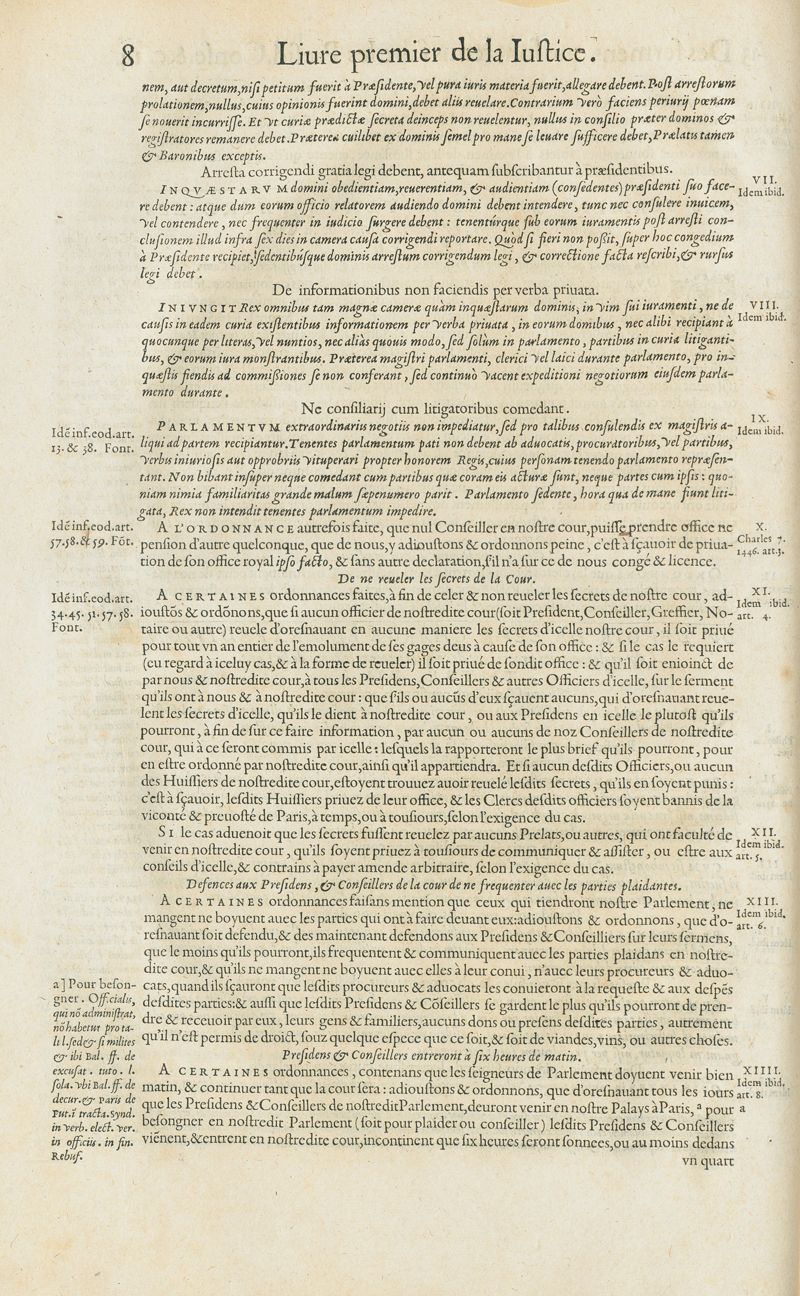 8 Liure premier de la Iuſtice.
nem, aut decretum, niſi petitum fuerit à Præſidente, vel pura iuris materia fuerit, allegare debent. Poſt arreſtorum
prolationem, nullus, cuius opinionis fuerint domini, debet aliis reuelare. Contrarium verò faciens periurij pœnam
ſe nouerit incurriſſe. Et vt curiæ prædictæ ſecreta deinceps non reuelentur, nullus in conſilio præter dominos &
regiſtratores remanere debet. Præterea cuilibet ex dominis ſemel pro mane ſe leuare ſufficere debet, Prælatis tamen
& Baronibus exceptis.
Arreſta corrigendi gratia legi debent, antequam ſubſcribantur à præſidentibus.
VII.
Idem ibid.
INQVÆSTARVM domini obedientiam, reuerentiam, & audientiam (conſedentes) præſidenti ſuo face-
re debent: atque dum eorum officio relatorem audiendo domini debent intendere, tunc nec conſulere inuicem,
vel contendere, nec frequenter in iudicio ſurgere debent: tenentúrque ſub eorum iuramentis poſt arreſti con-
cluſionem illud infra ſex dies in camera cauſa corrigendi reportare. Quòd ſi fieri non poßit, ſuper hoc congedium
à Præſidente recipiet, ſedentibúſque dominis arreſtum corrigendum legi, & correctione facta reſcribi, & rurſus
legi debet.
De informationibus non faciendis per verba priuata.
VIII.
Idem ibid.
INIVNGIT Rex omnibus tam magnæ cameræ quàm inquæſtarum dominis, in vim ſui iuramenti, ne de
cauſis in eadem curia exiſtentibus informationem per verba priuata, in eorum domibus, nec alibi recipiant à
quocunque per literas, vel nuntios, nec aliàs quouis modo, ſed ſolùm in parlamento, partibus in curia litiganti-
bus, & eorum iura monſtrantibus. Præterea magiſtri parlamenti, clerici vel laici durante parlamento, pro in-
quæſtis fiendis ad commißiones ſe non conferant, ſed continuò vacent expeditioni negotiorum eiuſdem parla-
mento durante.
Ne conſiliarij cum litigatoribus comedant.
IX.
Idem ibid.
Idẽ inf. eod. art.
13. & 38. Font.
PARLAMENTVM extraordinariis negotiis non impediatur, ſed pro talibus conſulendis ex magiſtris a-
liqui ad partem recipiantur. Tenentes parlamentum pati non debent ab aduocatis, procuratoribus, vel partibus,
verbis iniurioſis aut opprobriis vituperari propter honorem Regis, cuius perſonam tenendo parlamento repræſen-
tant. Non bibant inſuper neque comedant cum partibus quæ coram eis acturæ ſunt, neque partes cum ipſis: quo-
niam nimia familiaritas grande malum ſæpenumero parit. Parlamento ſedente, hora qua de mane fiunt liti-
gata, Rex non intendit tenentes parlamentum impedire.
X.
Charles 7.
1446. art. 3.
Idẽ inf. eod. art.
57. 58. & 59. Fõt.
A L'ORDONNANCE autrefois faite, que nul Conſeiller en noſtre cour, puiſſe prendre office ne
penſion d'autre quelconque, que de nous, y adiouſtons & ordonnons peine, c'eſt à ſçauoir de priua-
tion de ſon office royal ipſo facto, & ſans autre declaration, ſ'il n'a ſur ce de nous congé & licence.
De ne reueler les ſecrets de la Cour.
XI.
Idem ibid.
art. 4.
Idẽ inf. eod. art.
34. 45. 51. 57. 58.
Font.
A CERTAINES ordonnances faites, à fin de celer & non reueler les ſecrets de noſtre cour, ad-
iouſtõs & ordõnons, que ſi aucun officier de noſtredite cour (ſoit Preſident, Conſeiller, Greffier, No-
taire ou autre) reuele d'oreſnauant en aucune maniere les ſecrets d'icelle noſtre cour, il ſoit priué
pour tout vn an entier de l'emolument de ſes gages deus à cauſe de ſon office: & ſi le cas le requiert
(eu regard à iceluy cas, & à la forme de reueler) il ſoit priué de ſondit office: & qu'il ſoit enioinct de
par nous & noſtredite cour, à tous les Preſidens, Conſeillers & autres Officiers d'icelle, ſur le ſerment
qu'ils ont à nous & à noſtredite cour: que ſ'ils ou aucũs d'eux ſçauent aucuns, qui d'oreſnauant reue-
lent les ſecrets d'icelle, qu'ils le dient à noſtredite cour, ou aux Preſidens en icelle le pluſtoſt qu'ils
pourront, à fin de ſur ce faire information, par aucun ou aucuns de noz Conſeillers de noſtredite
cour, qui à ce ſeront commis par icelle: leſquels la rapporteront le plus brief qu'ils pourront, pour
en eſtre ordonné par noſtredite cour, ainſi qu'il appartiendra. Et ſi aucun deſdits Officiers, ou aucun
des Huiſſiers de noſtredite cour, eſtoyent trouuez auoir reuelé leſdits ſecrets, qu'ils en ſoyent punis:
c'eſt à ſçauoir, leſdits Huiſſiers priuez de leur office, & les Clercs deſdits officiers ſoyent bannis de la
viconté & preuoſté de Paris, à temps, ou à touſiours, ſelon l'exigence du cas.
XII.
Idem ibid.
art. 5.
SI le cas aduenoit que les ſecrets fuſſent reuelez par aucuns Prelats, ou autres, qui ont faculté de
venir en noſtredite cour, qu'ils ſoyent priuez à touſiours de communiquer & aſſiſter, ou eſtre aux
conſeils d'icelle, & contrains à payer amende arbitraire, ſelon l'exigence du cas.
Defences aux Preſidens, & Conſeillers de la cour de ne frequenter auec les parties plaidantes.
XIII.
Idem ibid.
art. 6.
A CERTAINES ordonnances faiſans mention que ceux qui tiendront noſtre Parlement, ne
mangent ne boyuent auec les parties qui ont à faire deuant eux: adiouſtons & ordonnons, que d'o-
reſnauant ſoit defendu, & des maintenant defendons aux Preſidens & Conſeilliers ſur leurs ſermens,
que le moins qu'ils pourront, ils frequentent & communiquent auec les parties plaidans en noſtre-
dite cour, & qu'ils ne mangent ne boyuent auec elles à leur conui, n'auec leurs procureurs & aduo-
cats, quand ils ſçauront que leſdits procureurs & aduocats les conuieront à la requeſte & aux deſpẽs
deſdites parties: & auſſi que leſdits Preſidens & Cõſeillers ſe gardent le plus qu'ils pourront de pren-
dre & receuoir par eux, leurs gens & familiers, aucuns dons ou preſens deſdites parties, autrement
qu'il n'eſt permis de droict, ſouz quelque eſpece que ce ſoit, & ſoit de viandes, vins, ou autres choſes.
a] Pour beſon-
gner. Officialis,
qui nõ adminiſtrat,
nõ habetur pro ta-
li l. ſed & ſi milites
& ibi Bal. ff. de
excuſat. tuto. l.
ſola. vbi Bal. ff. de
decur. & Paris de
Put. ĩ tracta. Synd.
in verb. elect. ver.
in officiis. in fin.
Rebuf.
Preſidens & Conſeillers entreront à ſix heures de matin.
XIIII.
Idem ibid.
art. 8.
a
A CERTAINES ordonnances, contenans que les ſeigneurs de Parlement doyuent venir bien
matin, & continuer tant que la cour ſera: adiouſtons & ordonnons, que d'oreſnauant tous les iours
que les Preſidens & Conſeillers de noſtredit Parlement, deuront venir en noſtre Palays à Paris, ª pour
beſongner en noſtredit Parlement (ſoit pour plaider ou conſeiller) leſdits Preſidens & Conſeillers
viẽnent, & entrent en noſtredite cour, incontinent que ſix heures ſeront ſonnees, ou au moins dedans
vn quart